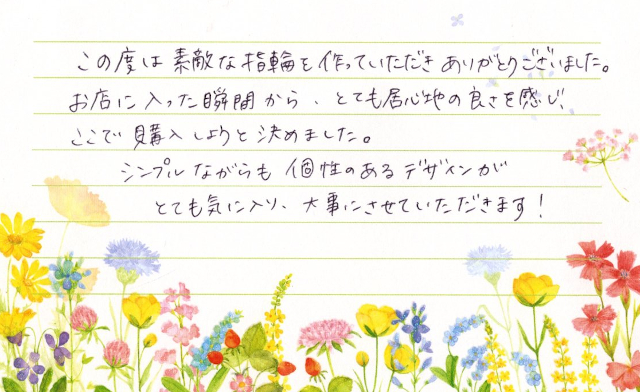 この度は素敵な指輪を作っていただきありがとうございました。
お店に入った瞬間から、とても居心地の良さを感じ、
ここで購入しようと決めました。
シンプルながらも個性のあるデザインが
とても気に入り、大事にさせていただきます！